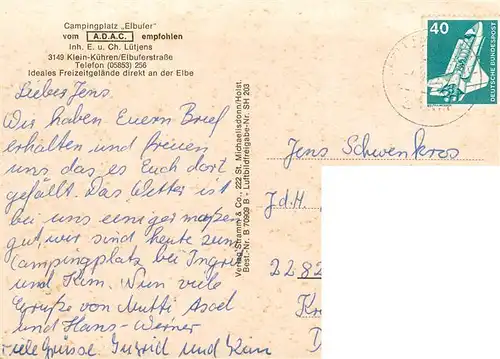 Campingplatz „Elbufer“
vom A.D.A.C. empfohlen
Inh. E. u. Ch. Lütjens
3149 Klein-Kühren/Elbuferstraße
Telefon (05853) 256
Ideales Freizeitgelände direkt an der Elbe
Lieber Jens.
Wir haben Euern Brief
erhalten und freuen
uns das es Euch dort
gefällt. Das Wetter ist
bei uns einigermaßen
gut, wir sind heute zum
Campingplatz bei Ingrid
und Kim. Nun viele
Grüße von Mutti, Axel
und Hans-Werner
viele Grüsse. Ingrid und
Verlag Stramm & Co., 222 St. Michaelisdonn/Holst.
Best.-Nr. B 70909 B - Luftbildfreigabe-Nr. SH 203
40
DEUTSCHE BUNDESPOST
Jens Schwenkros
J.d.H.
2282
Kr